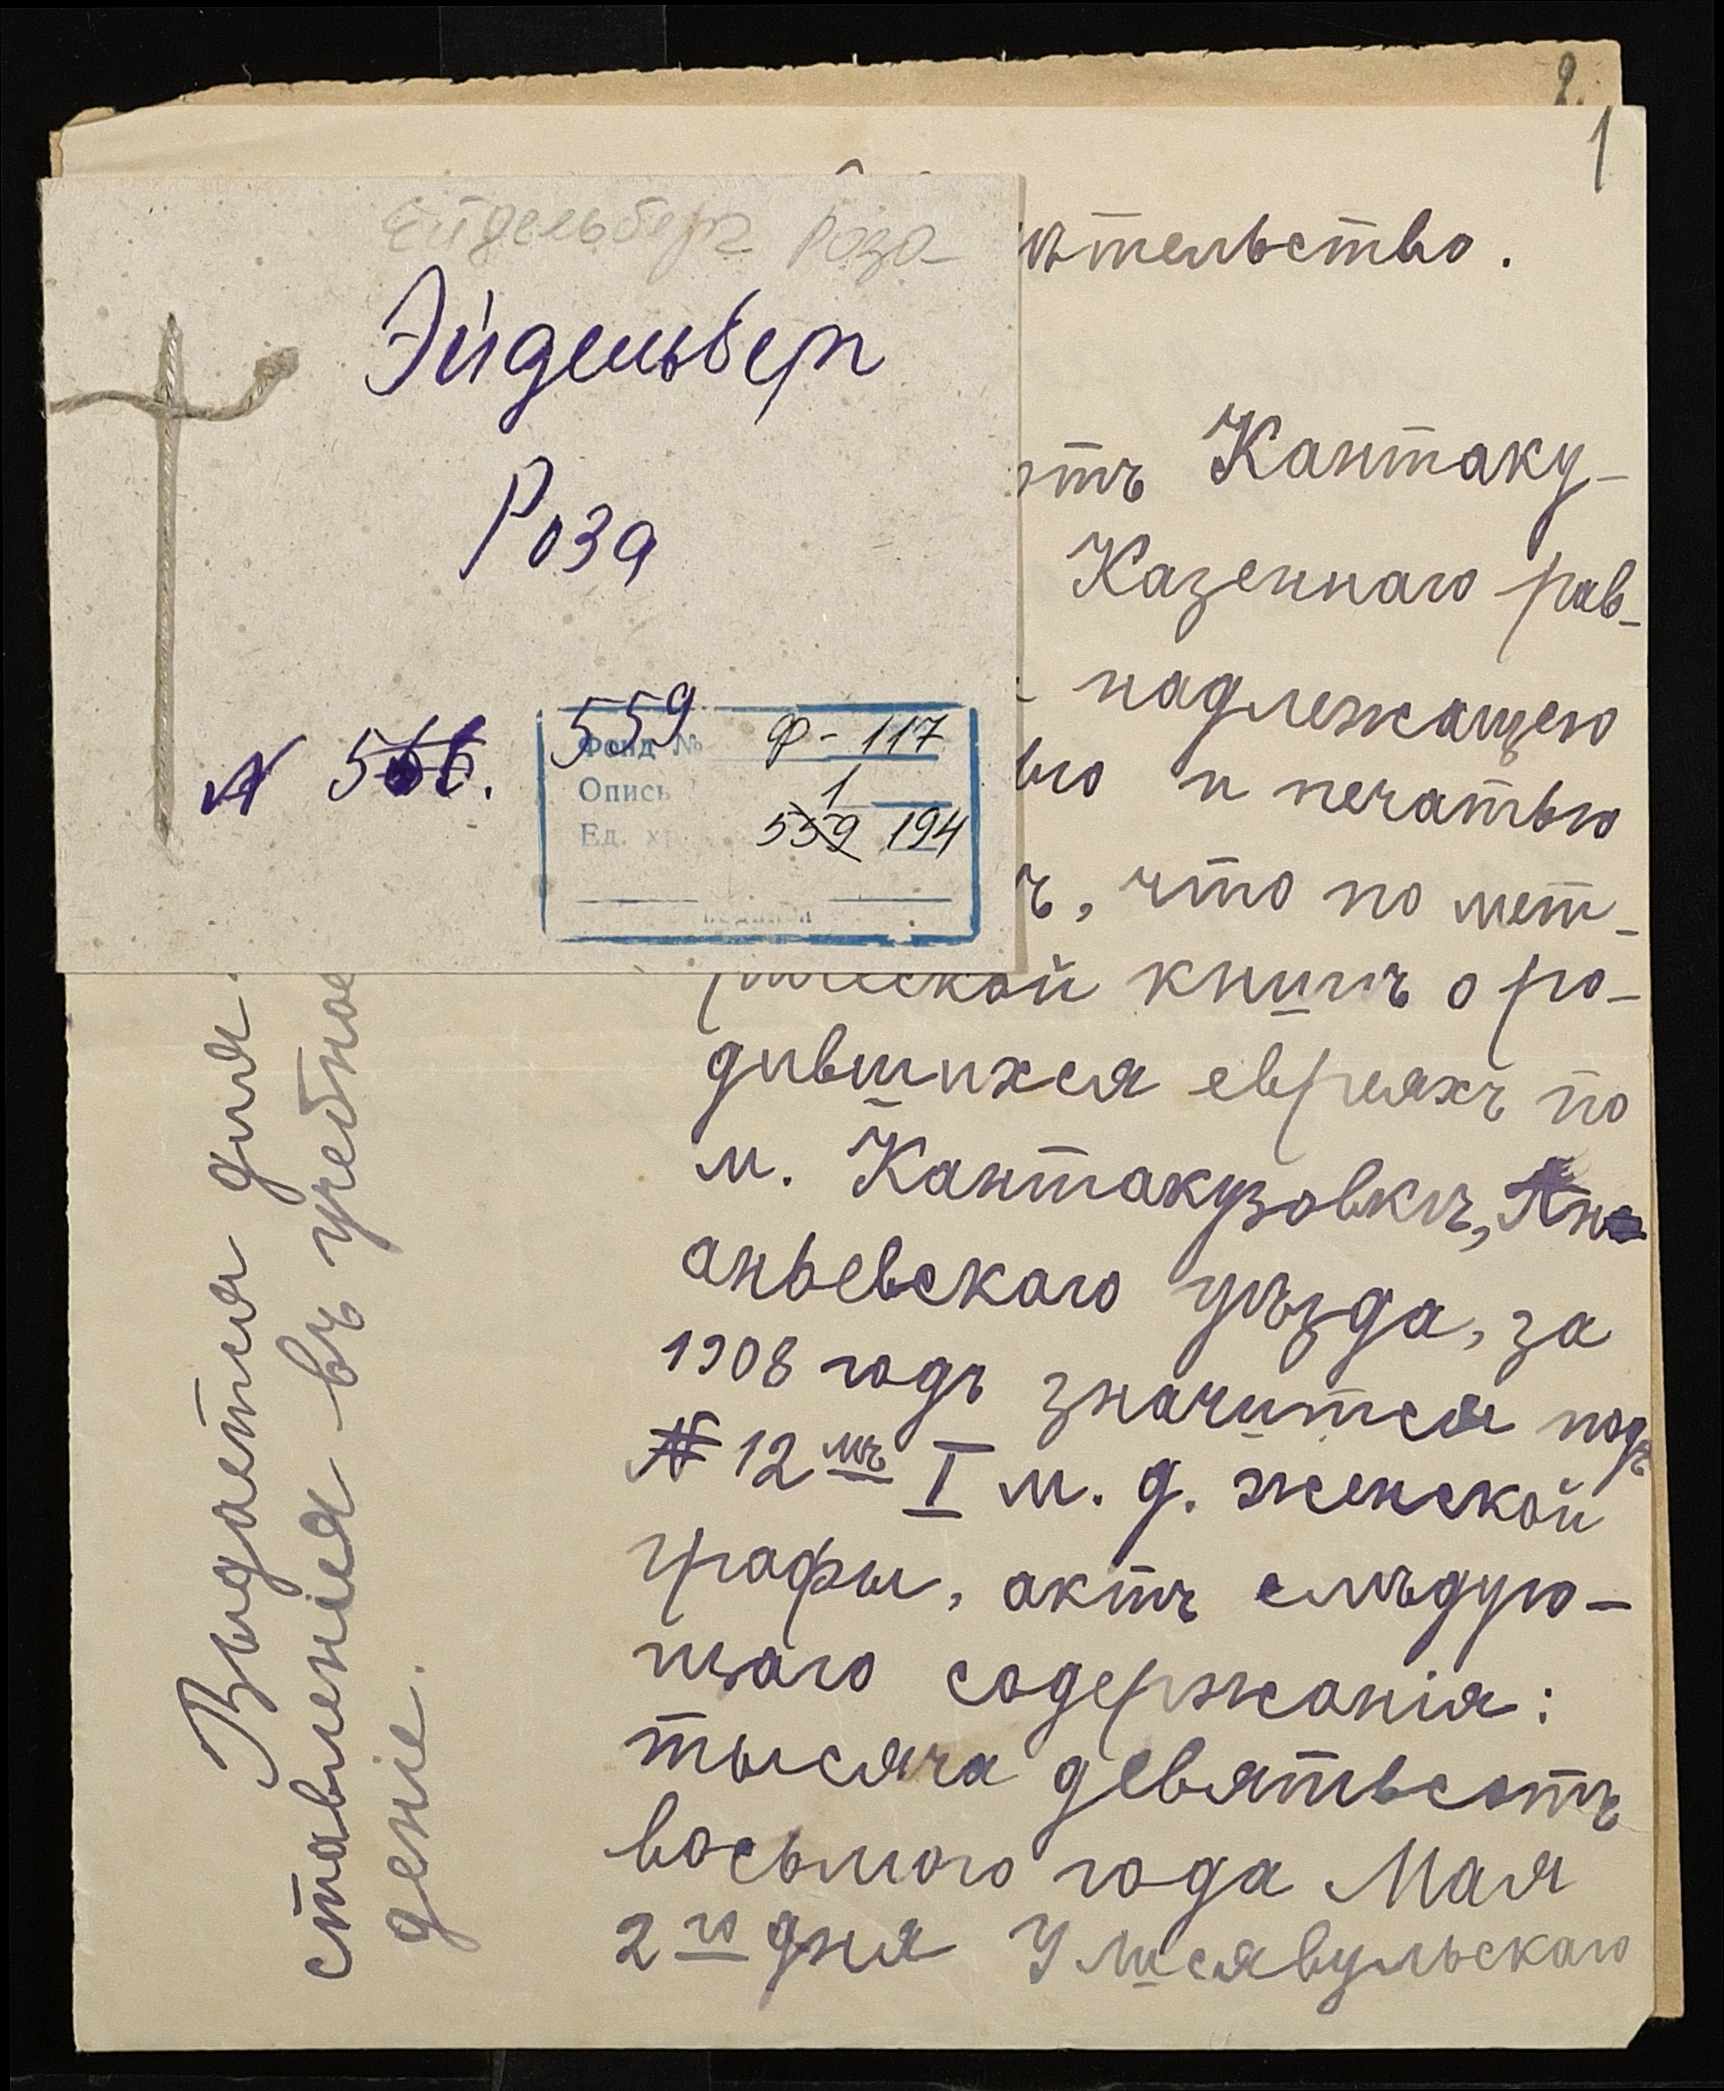 2.
1
Ейдельберг Роза
Эйдельберг
Роза
N 566. 559
Фонд № Ф-117
Опись 1
Ед. хр 559 194
ѣтельство.
отъ Кантаку-
Казеннаго рав-
надлежащею
ью и печатью
ъ, что по мет-
рической книгѣ о ро-
дившихся евреяхъ по
м. Кантакузовкѣ, Ан
аньевскаго уѣзда, за
1908 годъ значится подъ
№ 12 мъ I м. д. женской
графы, актъ слѣдую-
щаго содержанія:
тысяча девятьсотъ
восьмого года Мая
2 го дня У
Выдается для
ставленія въ учебное
деніе.